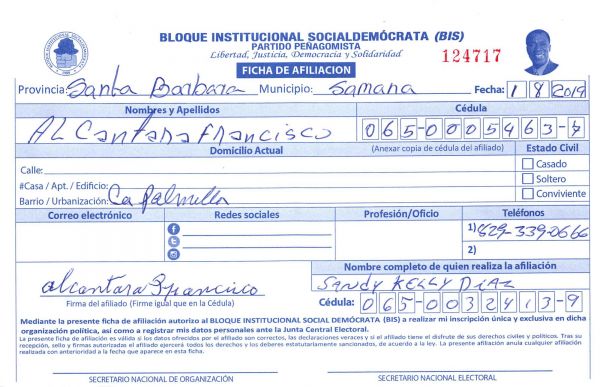 BLOQUE INSTITUCIONAL SOCIALDEMÓCRATA (BIS)
PARTIDO PEÑAGOMISTA
Libertad, Justicia, Democracia y Solidaridad
124717
FICHA DE AFILIACION
Provincia: Santa Barbara Municipio: Samana Fecha: 1/8/2019
Nombres y Apellidos Cédula
ALCantara francisco 065-0005463-7
Domicilio Actual (Anexar copia de cédula del afiliado) Estado Civil
Calle: Casado
#Casa / Apt. / Edificio: Soltero
Barrio / Urbanización: La Palmilla Conviviente
Correo electrónico Redes sociales Profesión/Oficio Teléfonos
1) 829-339-0666
2)
Nombre completo de quien realiza la afiliación
alcantara Francisco SANDY KELLY DIAZ
Firma del afiliado (Firme igual que en la Cédula) Cédula: 065-0032413-9
Mediante la presente ficha de afiliación autorizo al BLOQUE INSTITUCIONAL SOCIAL DEMÓCRATA (BIS) a realizar mi inscripción única y exclusiva en dicha
organización política, así como a registrar mis datos personales ante la Junta Central Electoral.
La presente ficha de afiliación es válida si los datos ofrecidos por el afiliado son correctos, las declaraciones veraces y si el afiliado tiene el disfrute de sus derechos civiles y políticos. Tras su
recepción, sello y firmas autorizadas el afiliado ejercerá todos los derechos y los deberes estatutariamente sancionados, de acuerdo a la ley. La presente afiliación anula cualquier afiliación
realizada con anterioridad a la fecha que aparece en esta ficha.
SECRETARIO NACIONAL DE ORGANIZACIÓN SECRETARIO NACIONAL ELECTORAL